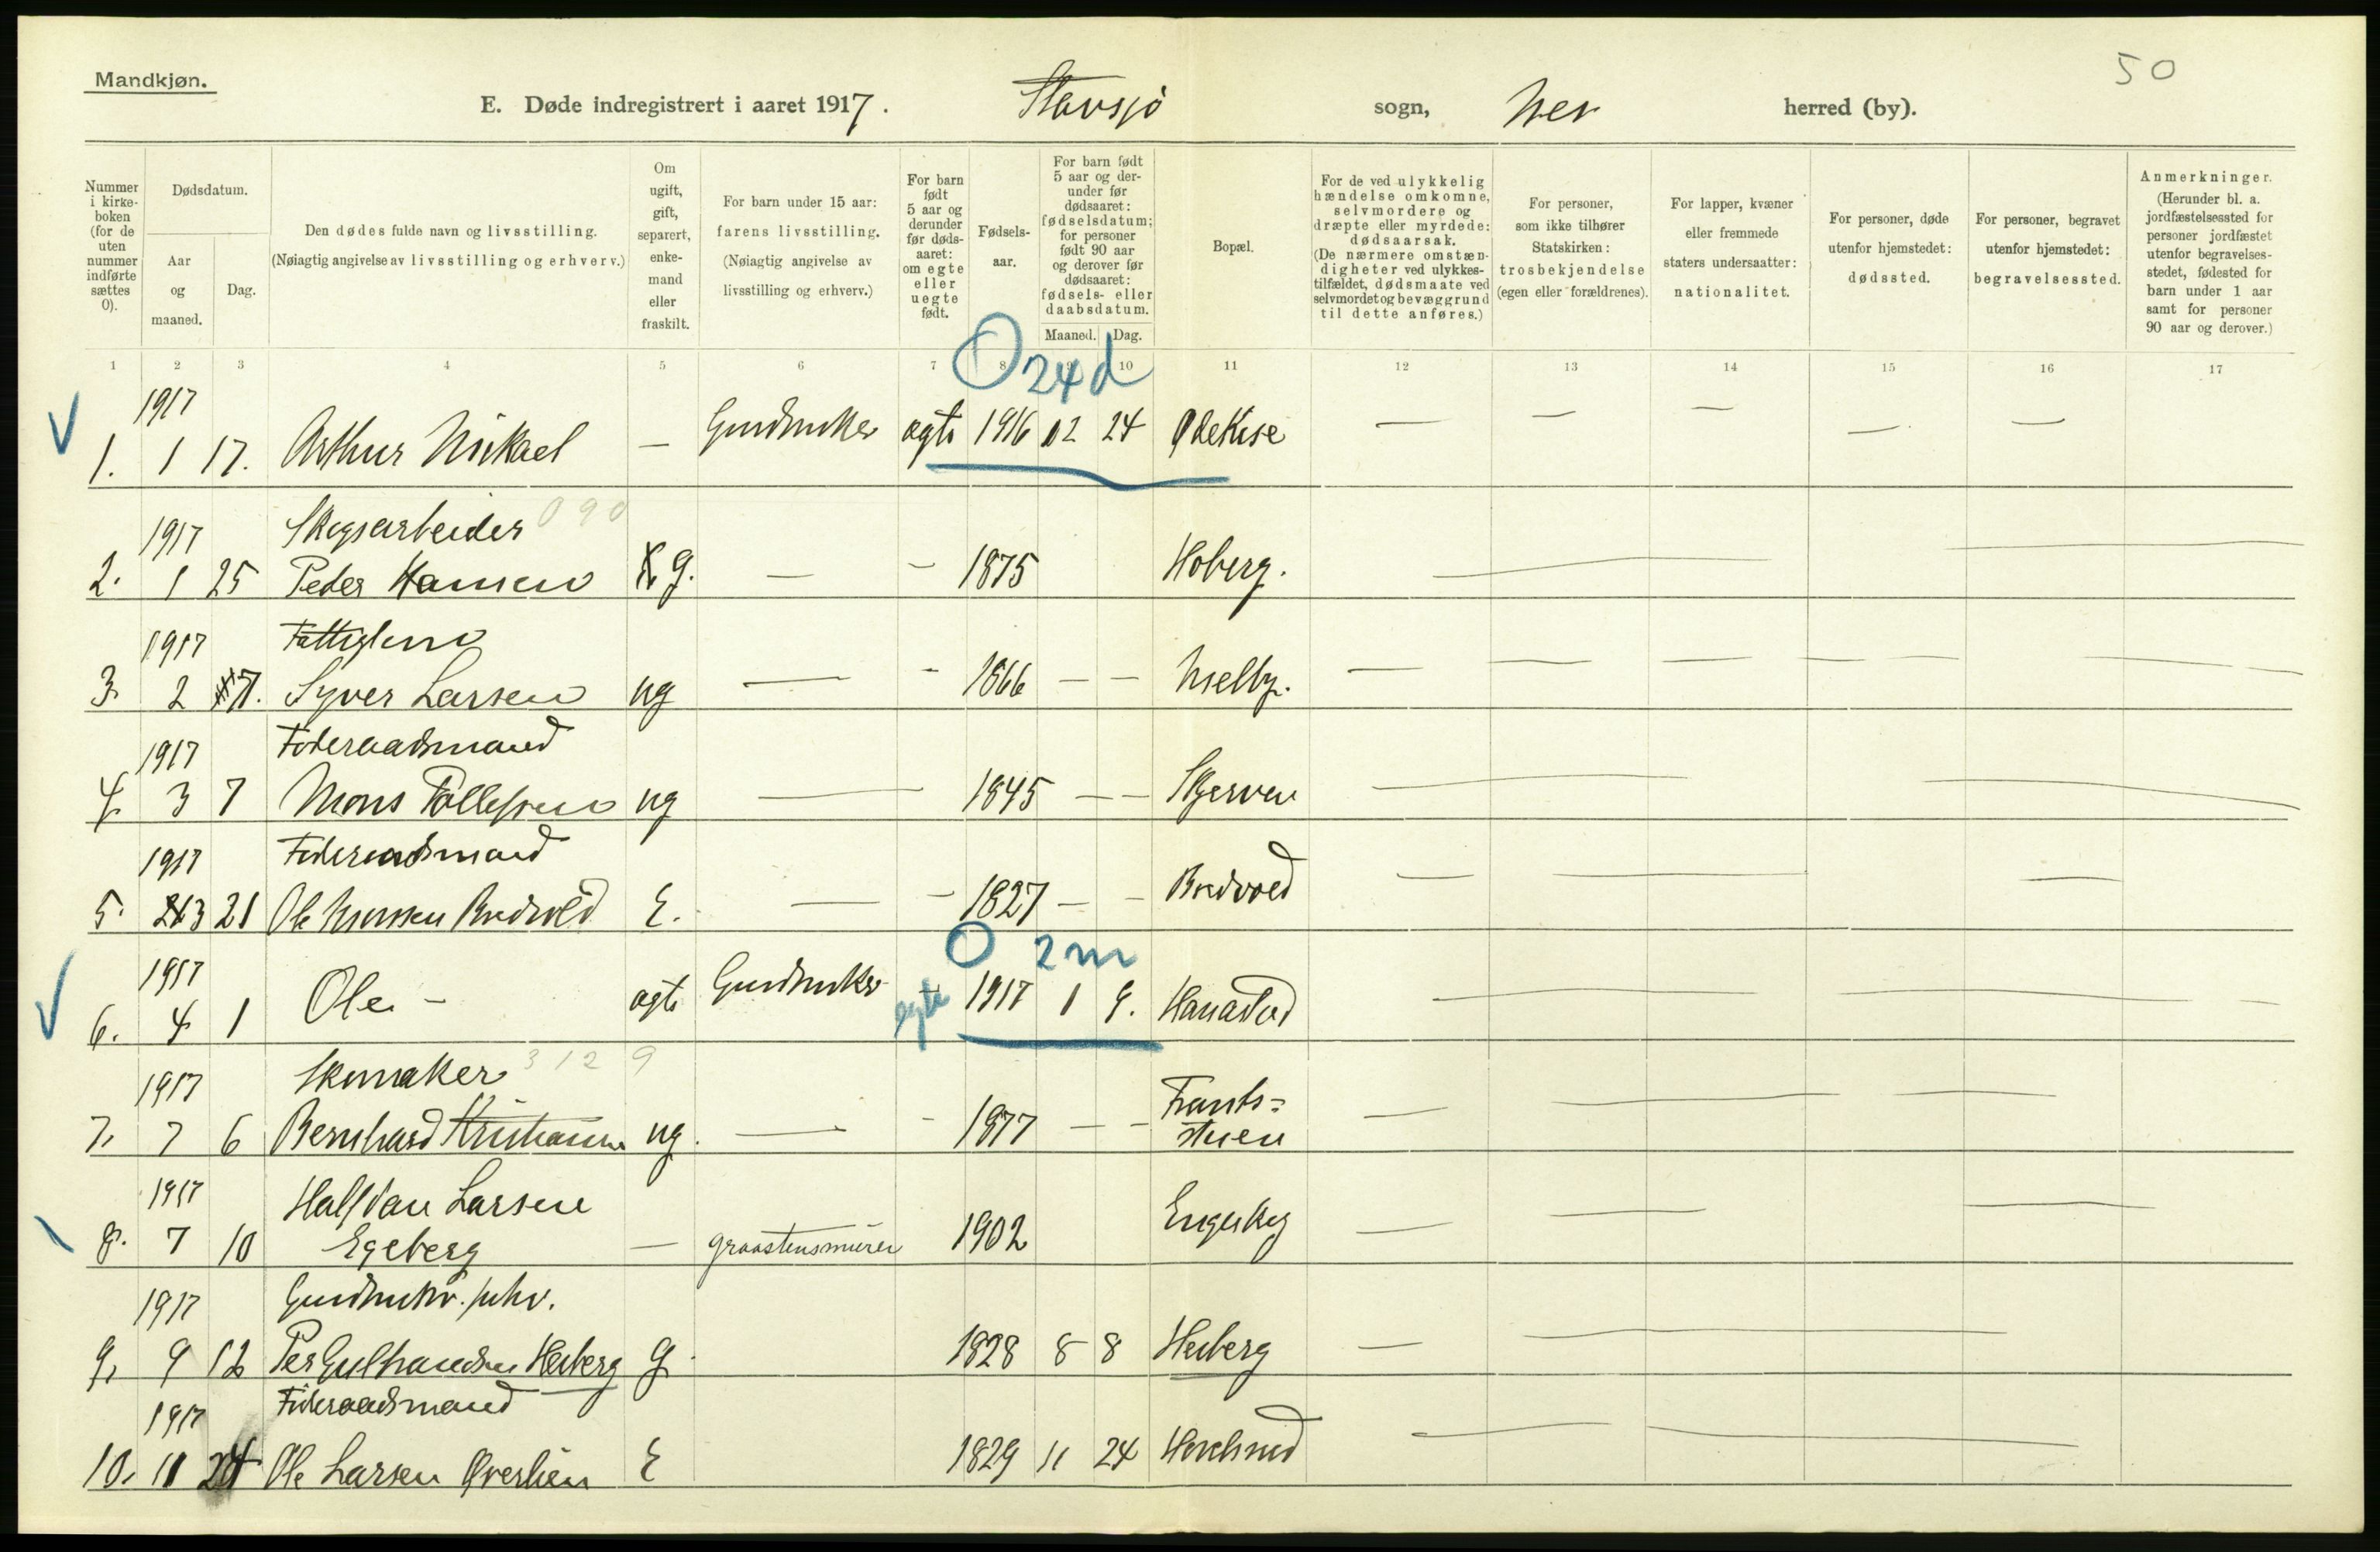 Mandkjøn.
50
E. Døde indregistrert i aaret 1917. Stavsjø sogn, Nes herred (by).
Nummer i kirkeboken (for de uten nummer indførte sættes 0).
Dødsdatum.
Aar og maaned.
Dag.
Den dødes fulde navn og livsstilling.
(Nøiagtig angivelse av livsstilling og erhverv.)
Om ugift, gift, separert, enkemand eller fraskilt.
For barn under 15 aar: farens livsstilling.
(Nøiagtig angivelse av livsstilling og erhverv.)
For barn født 5 aar og derunder før dødsaaret: om egte eller uegte født.
Fødselsaar.
For barn født 5 aar og derunder før dødsaaret: fødselsdatum; for personer født 90 aar og derover før dødsaaret: fødsels- eller daabsdatum.
Maaned. Dag.
Bopæl.
For de ved ulykkelig hændelse omkomne, selvmordere og dræpte eller myrdede: dødsaarsak.
(De nærmere omstændigheter ved ulykkestilfældet, dødsmaate ved selvmordet og bevæggrund til dette anføres.)
For personer, som ikke tilhører Statskirken: trosbekjendelse (egen eller forældrenes).
For lapper, kvæner eller fremmede staters undersaatter: nationalitet.
For personer, døde utenfor hjemstedet: dødssted.
For personer, begravet utenfor hjemstedet: begravelsessted.
Anmerkninger.
(Herunder bl. a. jordfæstelsessted for personer jordfæstet utenfor begravelsesstedet, fødested for barn under 1 aar samt for personer 90 aar og derover.)
1 2 3 4 5 6 7 8 10 11 12 13 14 15 16 17
0 24 d
1917
1. 1 17. Arthur Mikael — Gaardbruker ægte 1916 12 24 — — — — —
1917 Skogsarbeider 090
2. 1 25 Peder Hansen g. — – 1875 Hoberg.
1917 Fattiglem
3. 2 7. Syver Larsen ug — – 1866 — — Melby.
1917 Føderaadsmand
4. 3 7 Mons Pollessen ug — 1845 — — Skjerven
1917 Føderaadsmand
5. 3 21 Ole Monsen Bredvold E. — – 1827 — – Bredvold
0 2 m
1917
6. 4 1 Ole – ægte Gaardbruker egte 1917 1 9.
1917 Skomaker 312 9
7. 7 6 Bernhard Kristiansen ug. — – 1877 — – Frants=
stuen
1917 Halfdan Larsen
8. 7 10 Egeberg — graastensmurer 1902
1917 Gaardbruker
9. 9 12 Per Gulbrandsen Heiberg g. 1828 8 8 Heiberg
1917 Føderaadsmand
10. 11 24 Ole Larsen Øverlien E 1829 11 24